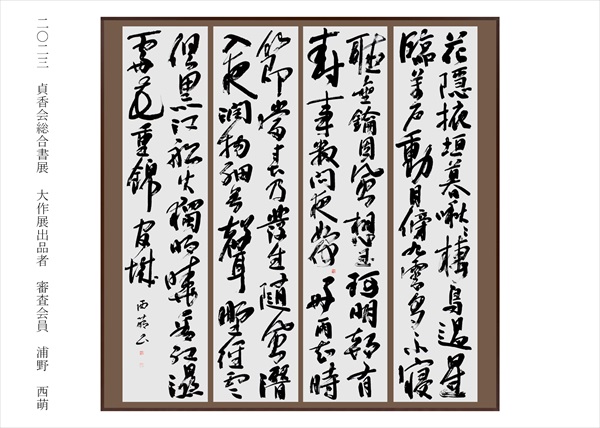 花隱掖垣暮啾々棲鳥過星
臨萬戶動月傍九霄多不寢
聽金鑰因風想玉珂明朝有
封事數問夜如何好雨知時
節當春乃發生隨風潛
入夜潤物細無聲野徑雲
俱黒江船火獨明曉看紅濕
處花重錦官城 西萌
二〇二三 貞香会総合書展 大作展出品者 審査会員 浦野 西萌